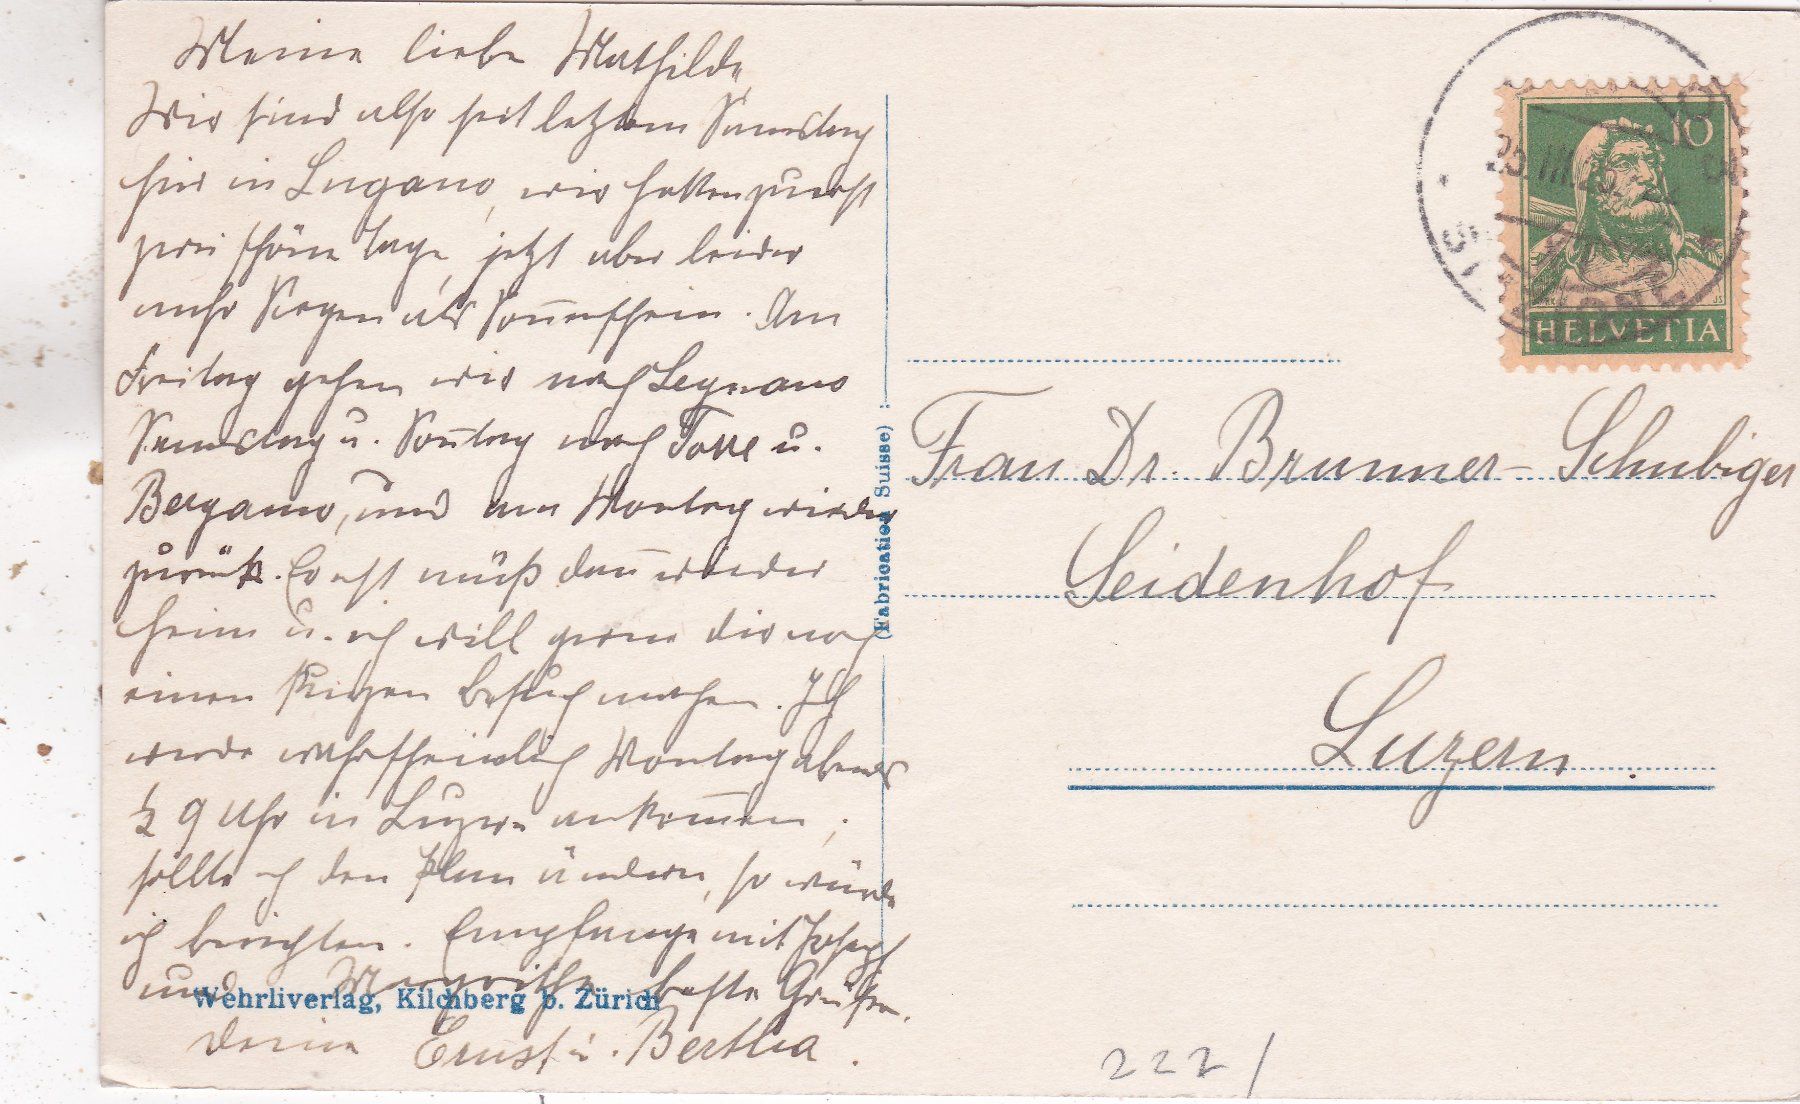 Meine liebe Mathilde,
Wir sind also seit letztem Samstag
hier in Lugano, wir hatten zuerst
zwei schöne Tage, jetzt aber leider
mehr Regen als Son̄enschein. Am
Freitag gehen wir nach Legnano
Samstag u. Son̄tag nach Torre u.
Bergamo, und am Montag wieder
zurück. Ernst muß dan̄ wieder
heim u. ich will gerne dir noch
einen kurzen Besuch machen. Ich
werde wahrscheinlich Montag abends
½ 9 Uhr in Luzern ankom̄en,
sollte ich den Plan ändern, so würde
ich berichten. Empfange mit Joseph
und Margrith beste Grüße,
deine Ernst u. Bertha.
Wehrliverlag, Kilchberg b. Zürich
(Fabrication Suisse)
10
HELVETIA
Frau Dr. Brunner-Schubiger
Seidenhof
Luzern.
222/